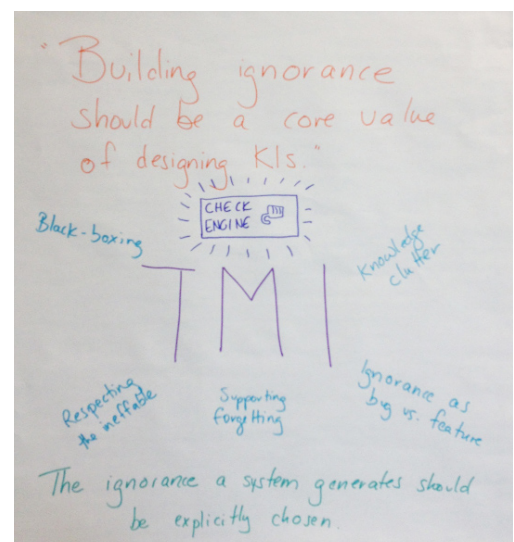 "Building ignorance
should be a core value
of designing KIs."
CHECK
ENGINE
Black-boxing
Knowledge
clutter
TMI
Respecting
the ineffable
Supporting
forgetting
Ignorance as
bug vs. feature
The ignorance a system generates should
be explicitly chosen.